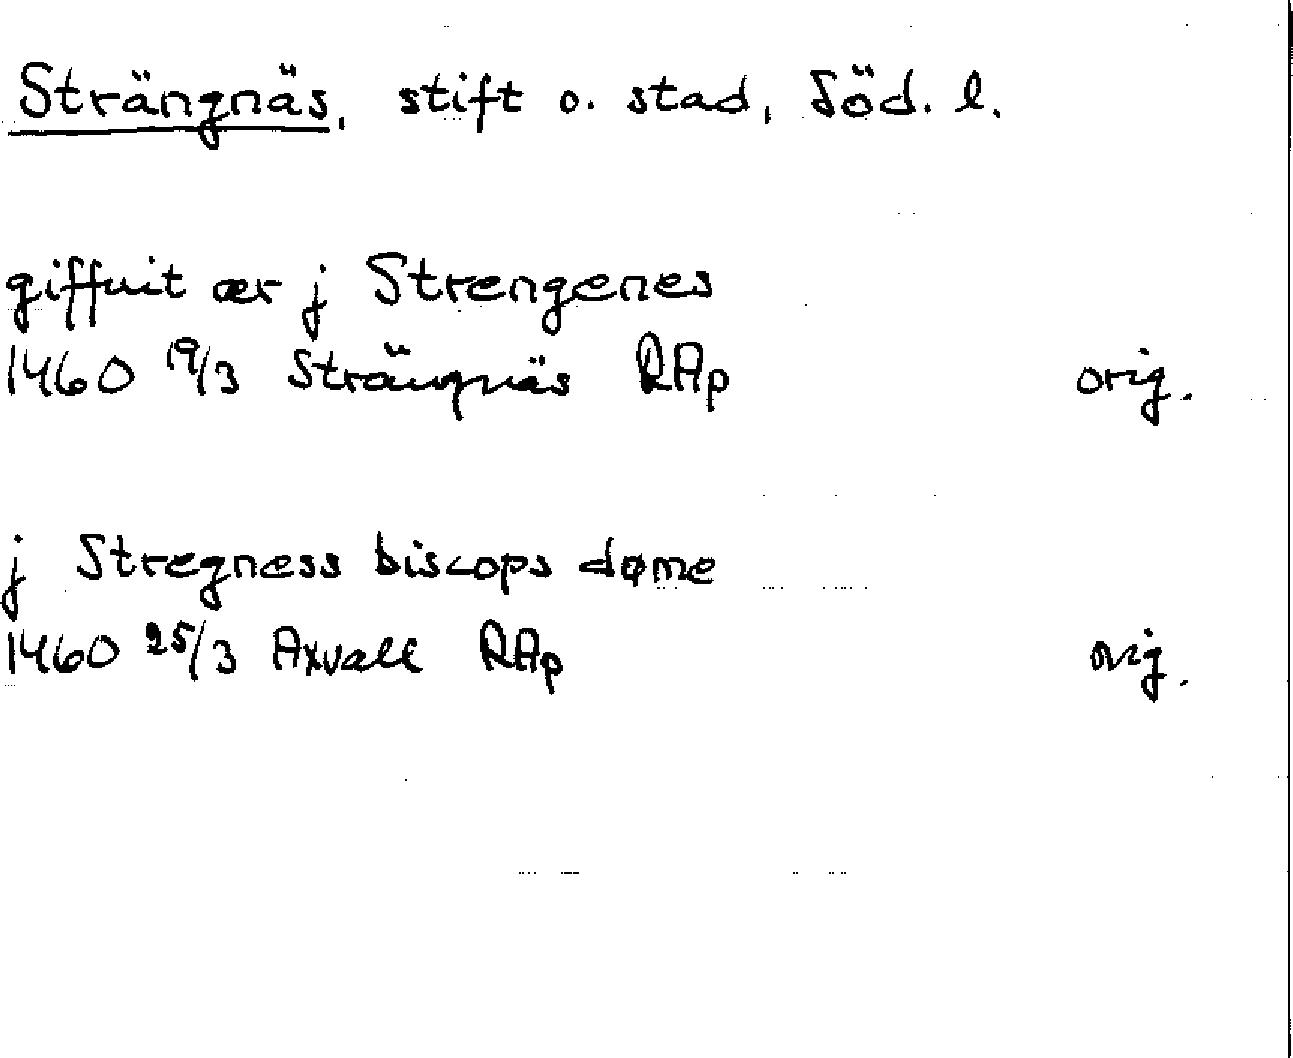 Strängnäs, stift o. stad, Söd. l.
giffuit ær j Strengenes
1460 19/3 Strängnäs RAp orig.
j Stregness biscops døme
1460 25/3 Axvall RAp orig.